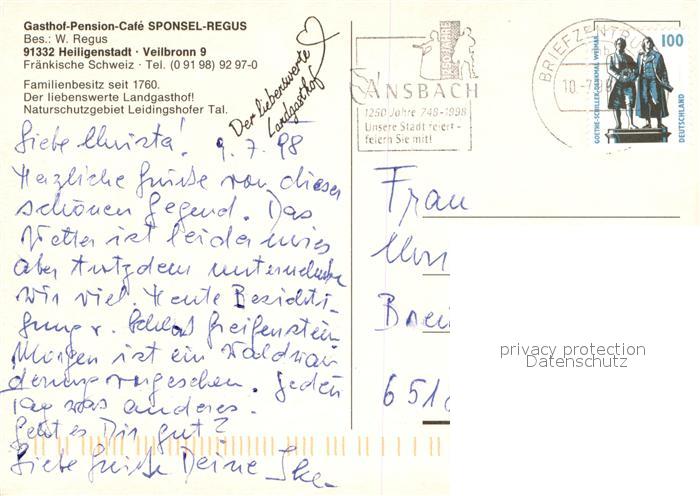 Gasthof-Pension-Café SPONSEL-REGUS
Bes.: W. Regus
91332 Heiligenstadt · Veilbronn 9
Fränkische Schweiz · Tel. (0 91 98) 92 97-0
Familienbesitz seit 1760.
Der liebenswerte Landgasthof!
Naturschutzgebiet Leidingshofer Tal.
Der liebenswerte
Landgasthof
BRIEFZENTRUM
10.-7.
ANSBACH
1250 Jahre 748-1998
Unsere Stadt feiert -
feiern Sie mit!
100
GOETHE-SCHILLER-DENKMAL WEIMAR
DEUTSCHLAND
Liebe Christa! 9.7.98
Herzliche Grüße von dieser
schönen Gegend. Das
Wetter ist leider mies
aber trotzdem unternehmen
wir viel. Heute Besichti-
gung v. Schloß Greifenstein
Morgen ist ein Waldwan
derung vorgesehen. Jeden
Tag was anderes.
Geht es Dir gut?
Liebe Grüße Deine Ilse
Frau
Chri
Brei
651
privacy protection
Datenschutz